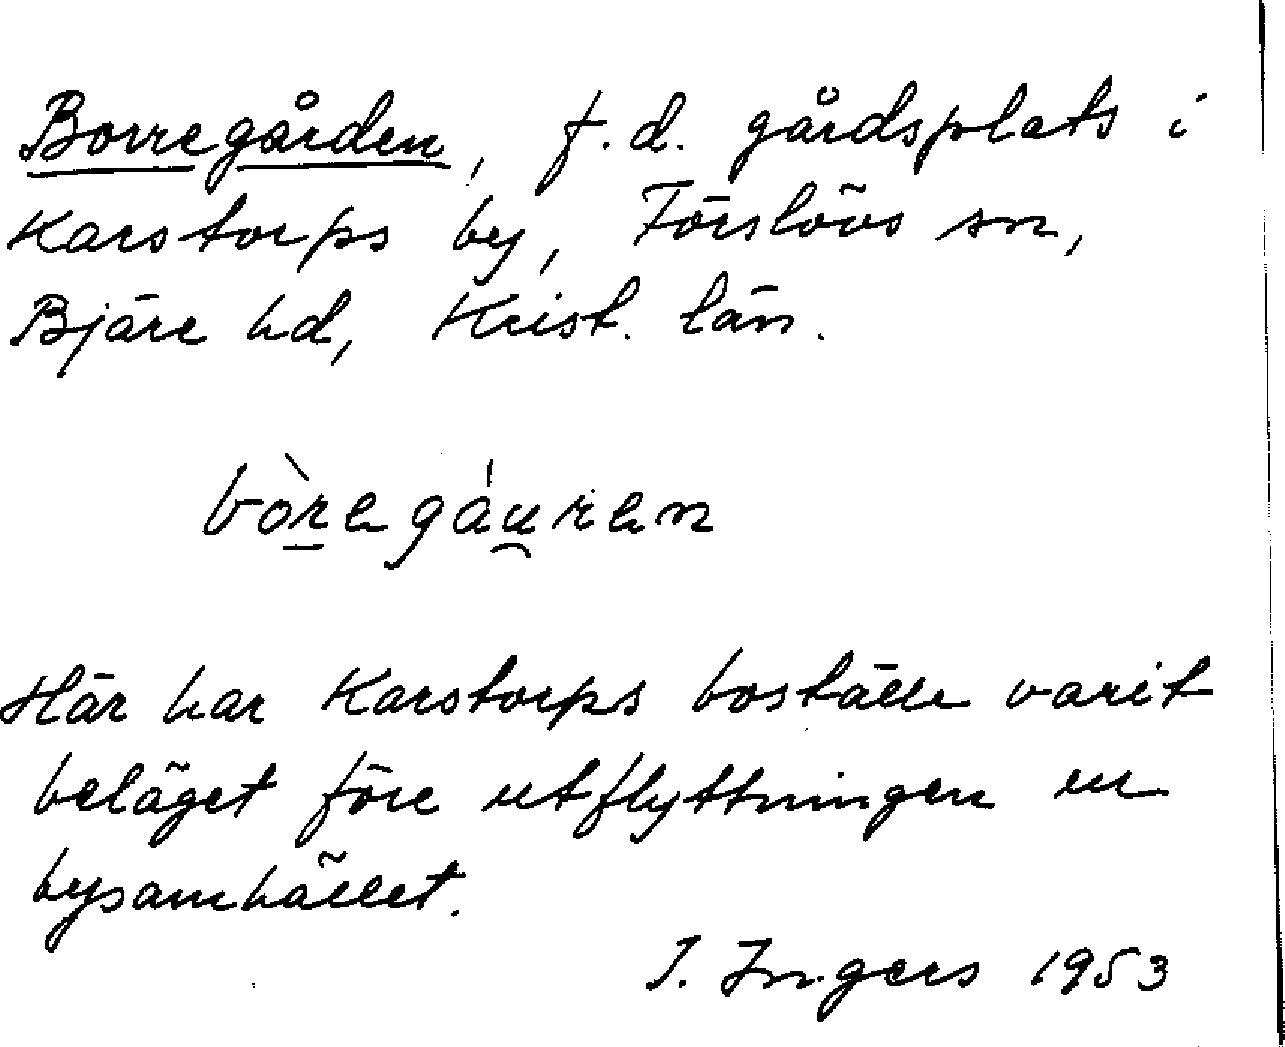 Borregården, f.d. gårdsplats i
Karstorps by, Förslövs sn,
Bjäre hd, Krist. län.
bòr̲egáu̯ren
Här har Karstorps boställe varit
beläget före utflyttningen ur
bysamhället.
I. Ingers 1953